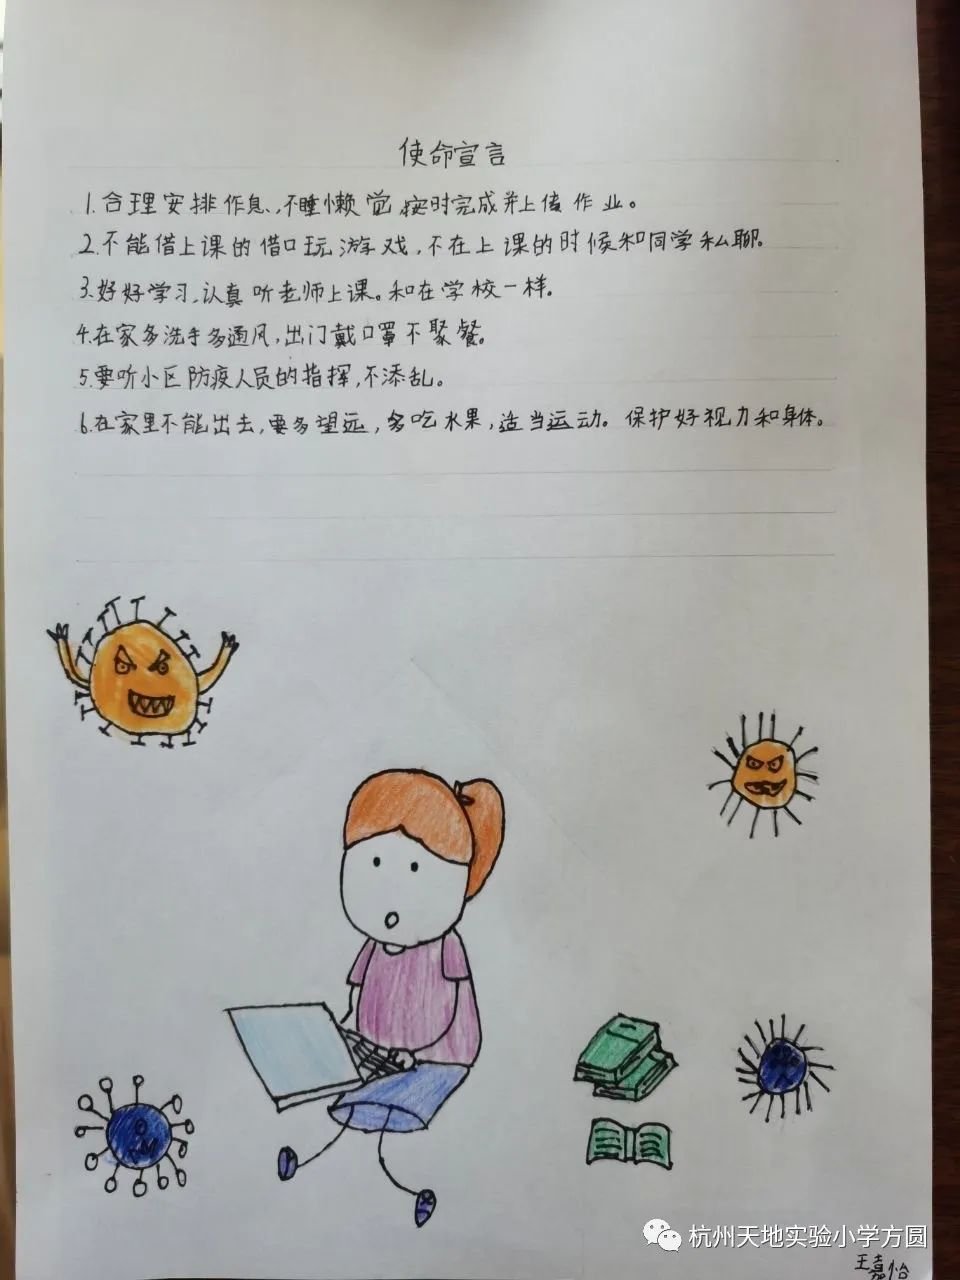 使命宣言
1.合理安排作息,不睡懒觉,按时完成并上传作业。
2.不能借上课的借口玩游戏,不在上课的时候和同学私聊。
3.好好学习,认真听老师上课。和在学校一样。
4.在家多洗手多通风,出门戴口罩不聚餐。
5.要听小区防疫人员的指挥,不添乱。
6.在家里不能出去,要多望远,多吃水果,适当运动。保护好视力和身体。
杭州天地实验小学方圆
王嘉怡